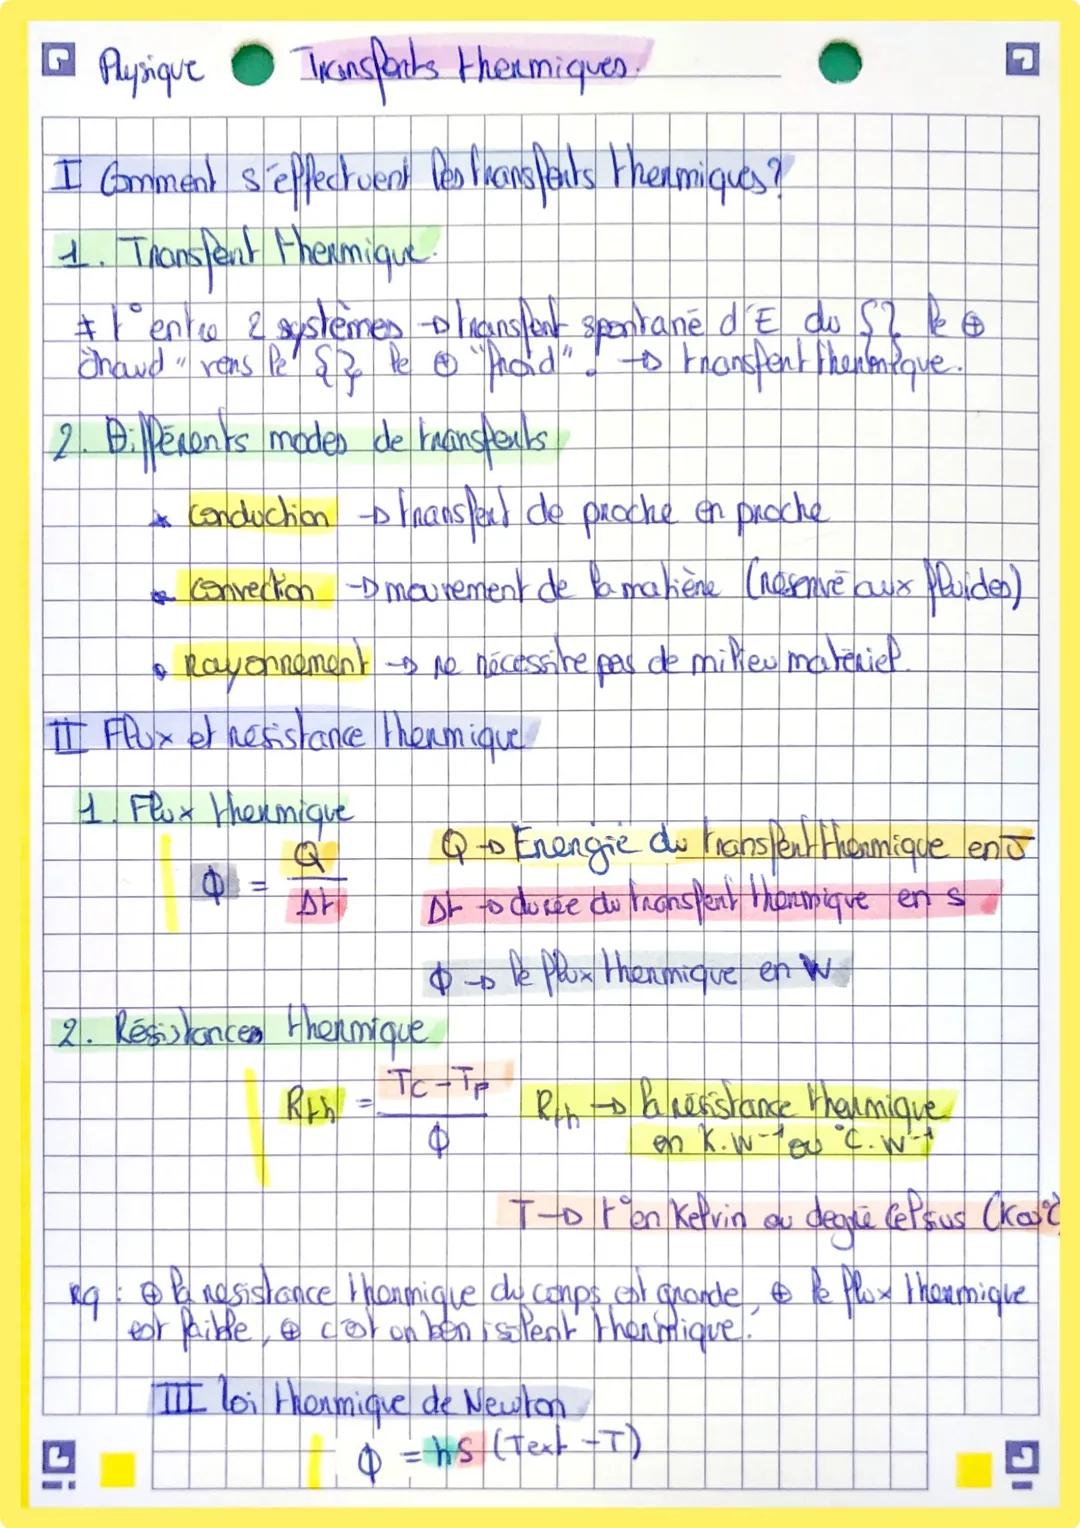 Physique Transferts thermiques.
I Comment s'effectuent les transferts thermiques ?
1. Transfert thermique.
≠ t° entre 2 systèmes → transfert spontané d'E du {S} le ⊕
"chaud" vers le {S} le ⊕ "froid". → transfert thermique.
2. Différents modes de transferts
* conduction → transfert de proche en proche
• convection → mouvement de la matière (réservé aux fluides)
• rayonnement → ne nécessite pas de milieu matériel.
II Flux et résistance thermique
1. Flux thermique
ϕ = Q / Δt
Q → Energie du transfert thermique en J
Δt → durée du transfert thermique en s
ϕ → le flux thermique en W
2. Résistances thermique
Rth = (Tc - Tf) / ϕ
Rth → la résistance thermique
en K.W⁻¹ ou °C.W⁻¹
T → t° en Kelvin ou degré Celsius (K ou °C
Rq : ⊕ la résistance thermique du corps est grande, ⊕ le flux thermique
est faible, ⊕ c'est un bon isolent thermique.
III loi thermique de Newton
ϕ = hS (Text - T)